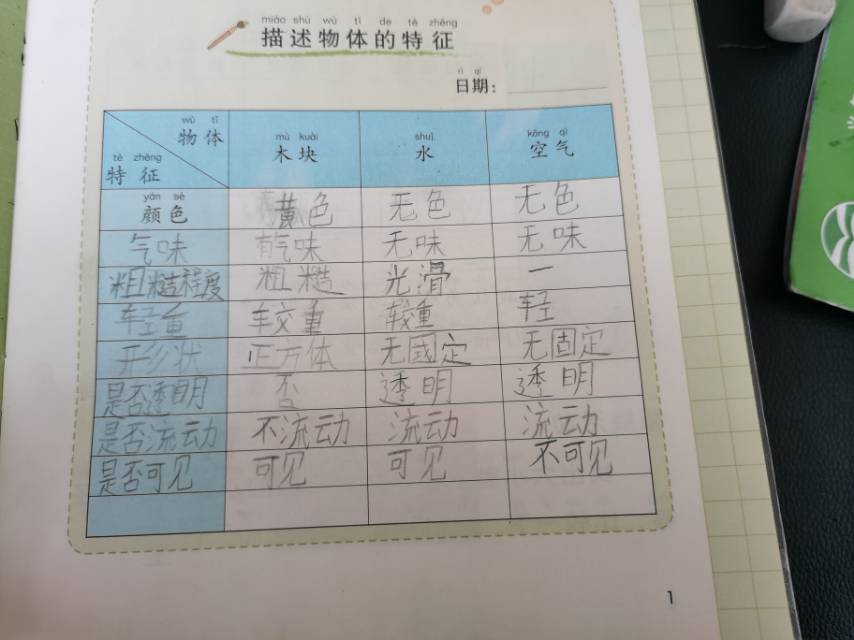 miáo shù wù tǐ de tè zhēng
描述物体的特征
rì qī
日期：
wù tǐ
物体
tè zhēng
特征
mù kuài
木块
shuǐ
水
kōng qì
空气
yán sè
颜色 黄色 无色 无色
气味 有气味 无味 无味
粗糙程度 粗糙 光滑 一
轻重 较重 较重 轻
形状 正方体 无固定 无固定
是否透明 否 透明 透明
是否流动 不流动 流动 流动
是否可见 可见 可见 不可见
1